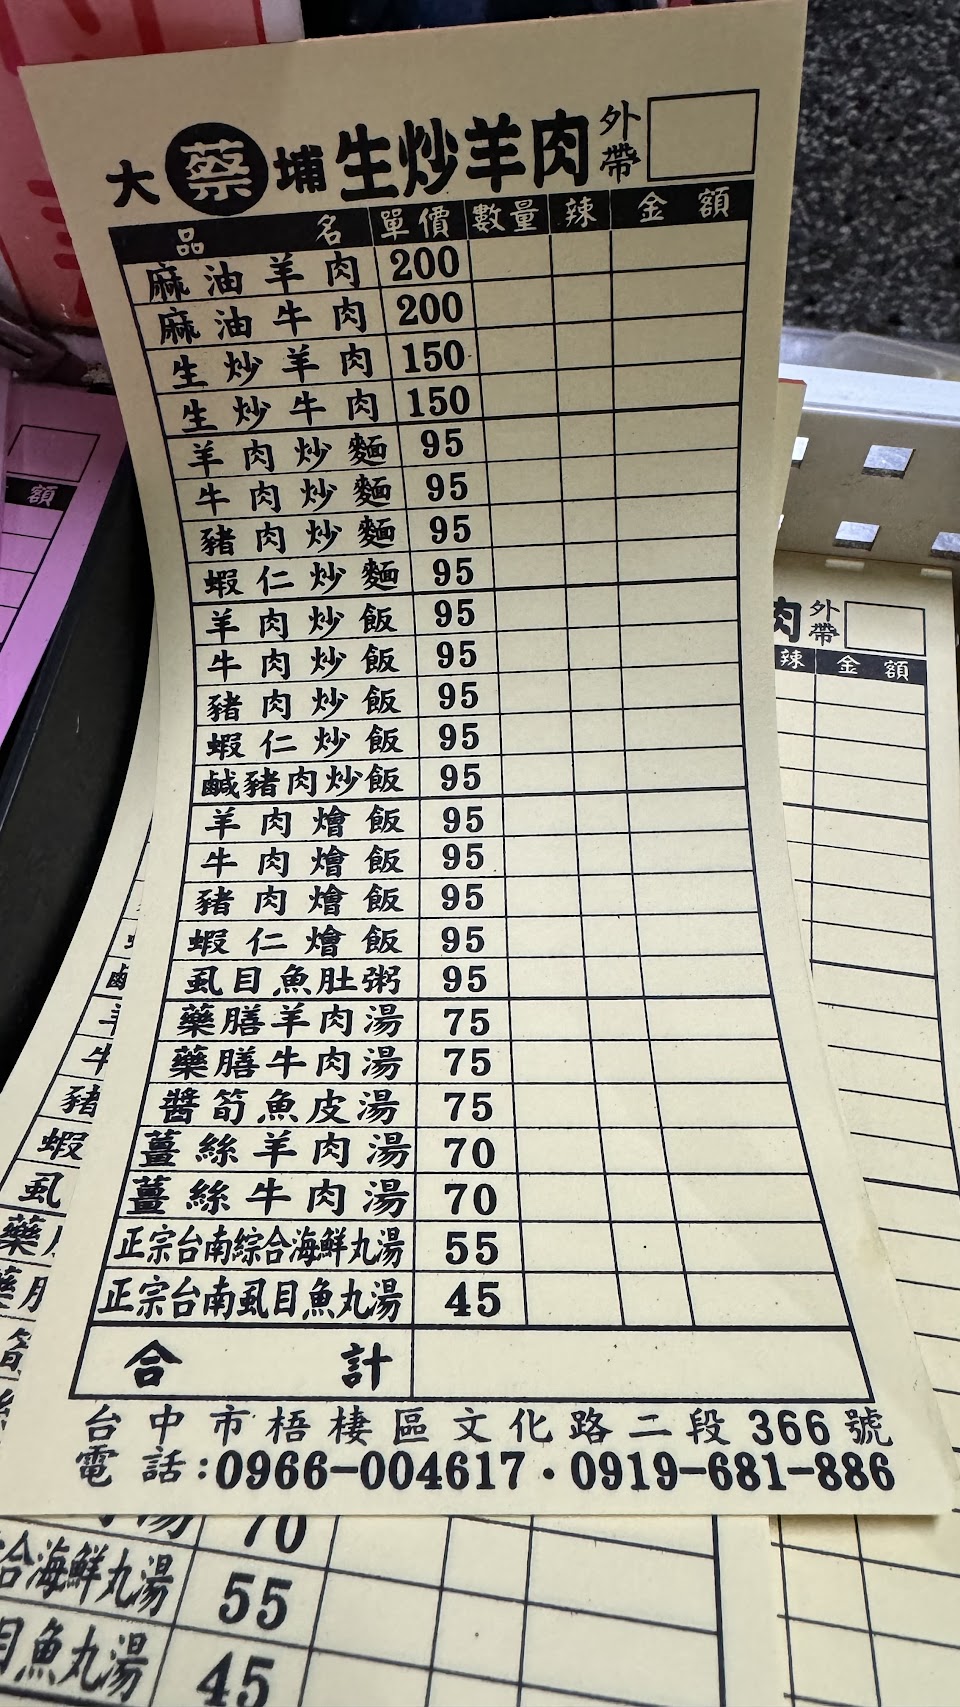 大蔡埔生炒羊肉 外帶
品名 單價 數量 辣 金額
麻油羊肉 200
麻油牛肉 200
生炒羊肉 150
生炒牛肉 150
羊肉炒麵 95
牛肉炒麵 95
豬肉炒麵 95
蝦仁炒麵 95
羊肉炒飯 95
牛肉炒飯 95
豬肉炒飯 95
蝦仁炒飯 95
鹹豬肉炒飯 95
羊肉燴飯 95
牛肉燴飯 95
豬肉燴飯 95
蝦仁燴飯 95
虱目魚肚粥 95
藥膳羊肉湯 75
藥膳牛肉湯 75
醬筍魚皮湯 75
薑絲羊肉湯 70
薑絲牛肉湯 70
正宗台南綜合海鮮丸湯 55
正宗台南虱目魚丸湯 45
合計
台中市梧棲區文化路二段366號
電話:0966-004617・0919-681-886
額
肉 外帶
辣 金額
羊
牛
豬
蝦
虱
藥
湯 70
合海鮮丸湯 55
目魚丸湯 45